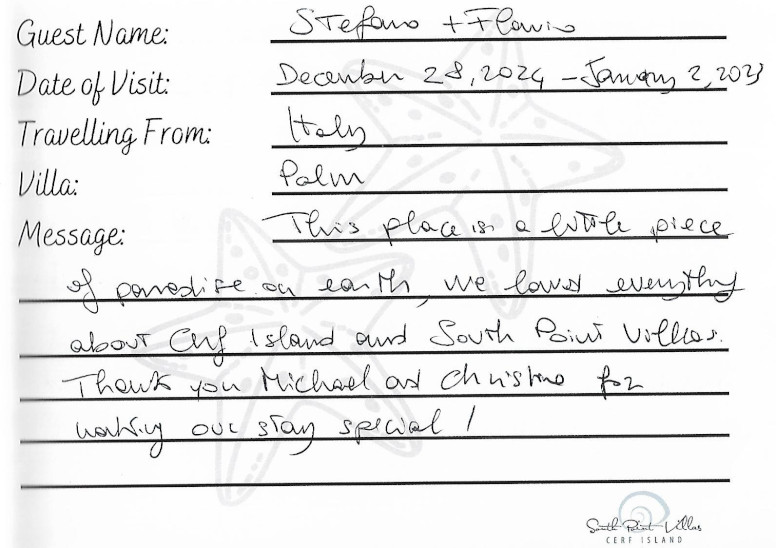 Guest Name: Stefano + Flavio
Date of Visit: December 28, 2024 - January 2, 2025
Travelling From: Italy
Villa: Palm
Message: This place is a little piece
of paradise on earth, we loved everything
about Cerf Island and South Point Villas.
Thank you Michael and Christine for
making our stay special!
South Point Villas
CERF ISLAND